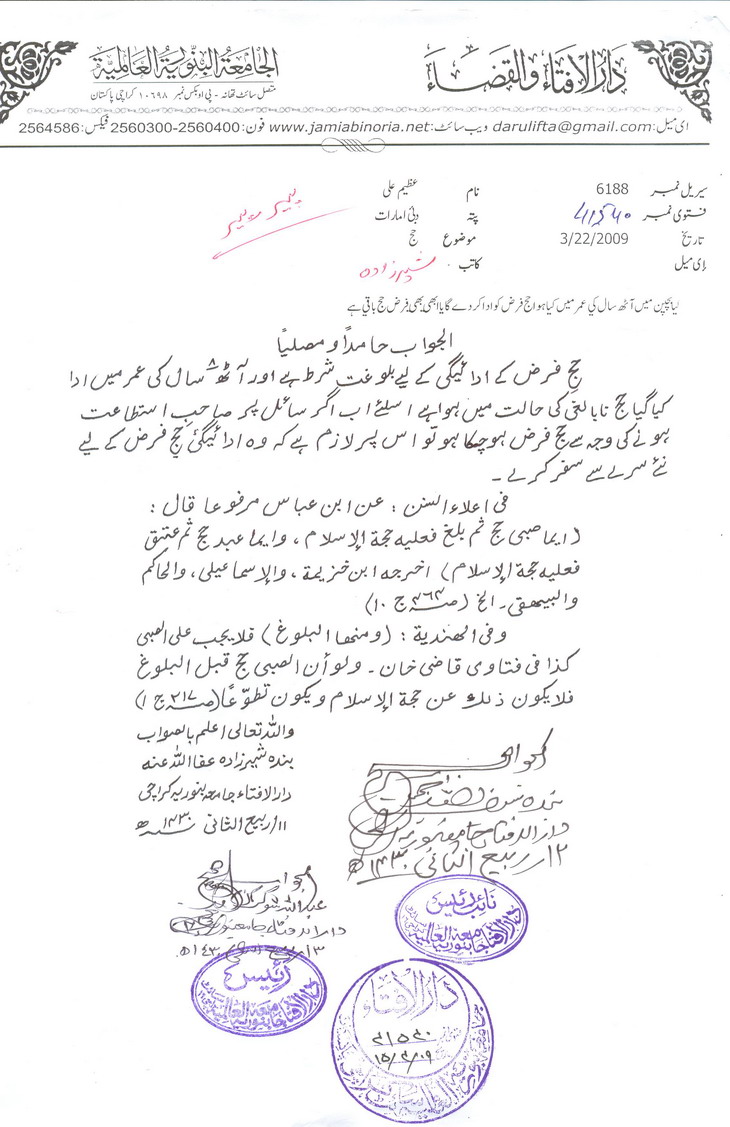 دار الافتاء والقضاء
الجامعة البنورية العالمية
متصل سائٹ تھانہ - پی او بکس نمبر ۱۰۶۹۸ کراچی پاکستان
ای میل: darulifta@gmail.com ویب سائٹ: www.jamiabinoria.net فون: 2560300-2560400 فیکس: 2564586
سیریل نمبر 6188 نام عظیم علی
فتوی نمبر ۴۱۵۴۰ پتہ دبئی امارات
تاریخ 3/22/2009 موضوع حج
ای میل کاتب شہیرزادہ
کیا بچپن میں آٹھ سال کی عمر میں کیا ہوا حج فرض کو ادا کر دے گا یا ابھی بھی فرض حج باقی ہے
الجواب حامدًا و مصلیًا
حج فرض کے ادائیگی کے لیے بلوغت شرط ہے اور آٹھ ۸ سال کی عمر میں ادا
کیا گیا حج نابالغی کی حالت میں ہوا ہے اسلئے اب اگر سائل پر صاحبِ استطاعت
ہونے کی وجہ سے حج فرض ہوچکا ہو تو اس پر لازم ہے کہ وہ ادائیگیٔ حج فرض کے لیے
نئے سرے سے سفر کرلے ۔
فی اعلاء السنن : عن ابن عباس مرفوعا قال :
(ایما صبی حج ثم بلغ فعلیه حجة الإسلام ، وایما عبد حج ثم عتق
فعلیه حجة الإسلام) اخرجه ابن خزیمة ، والإسماعیلی ، والحاکم
والبیهقی ۔ الخ (صـ ۴۶۳ ج ۱۰)
وفی الهندیة : (ومنها البلوغ) فلا یجب علی الصبی
کذا فی فتاوی قاضی خان ۔ ولو أن الصبی حج قبل البلوغ
فلا یکون ذلك عن حجة الإسلام ویکون تطوّعًا (صـ ۲۱۷ ج ۱)
واللہ تعالی اعلم بالصواب
بندہ شہیرزادہ عفا اللہ عنہ
دار الافتاء جامعہ بنوریہ کراچی
۱۱/ ربیع الثانی ۱۴۳۰ھ
دار الافتاء جامعہ بنوریہ
۱۲/ ربیع الثانی ۱۴۳۰ھ
نائب رئیس
دار الافتاء جامعہ بنوریہ العالمیہ
رئیس
دار الافتاء جامعہ بنوریہ العالمیہ
دار الافتاء
۴۱۵۴۰
۱۵/۴/۰۹